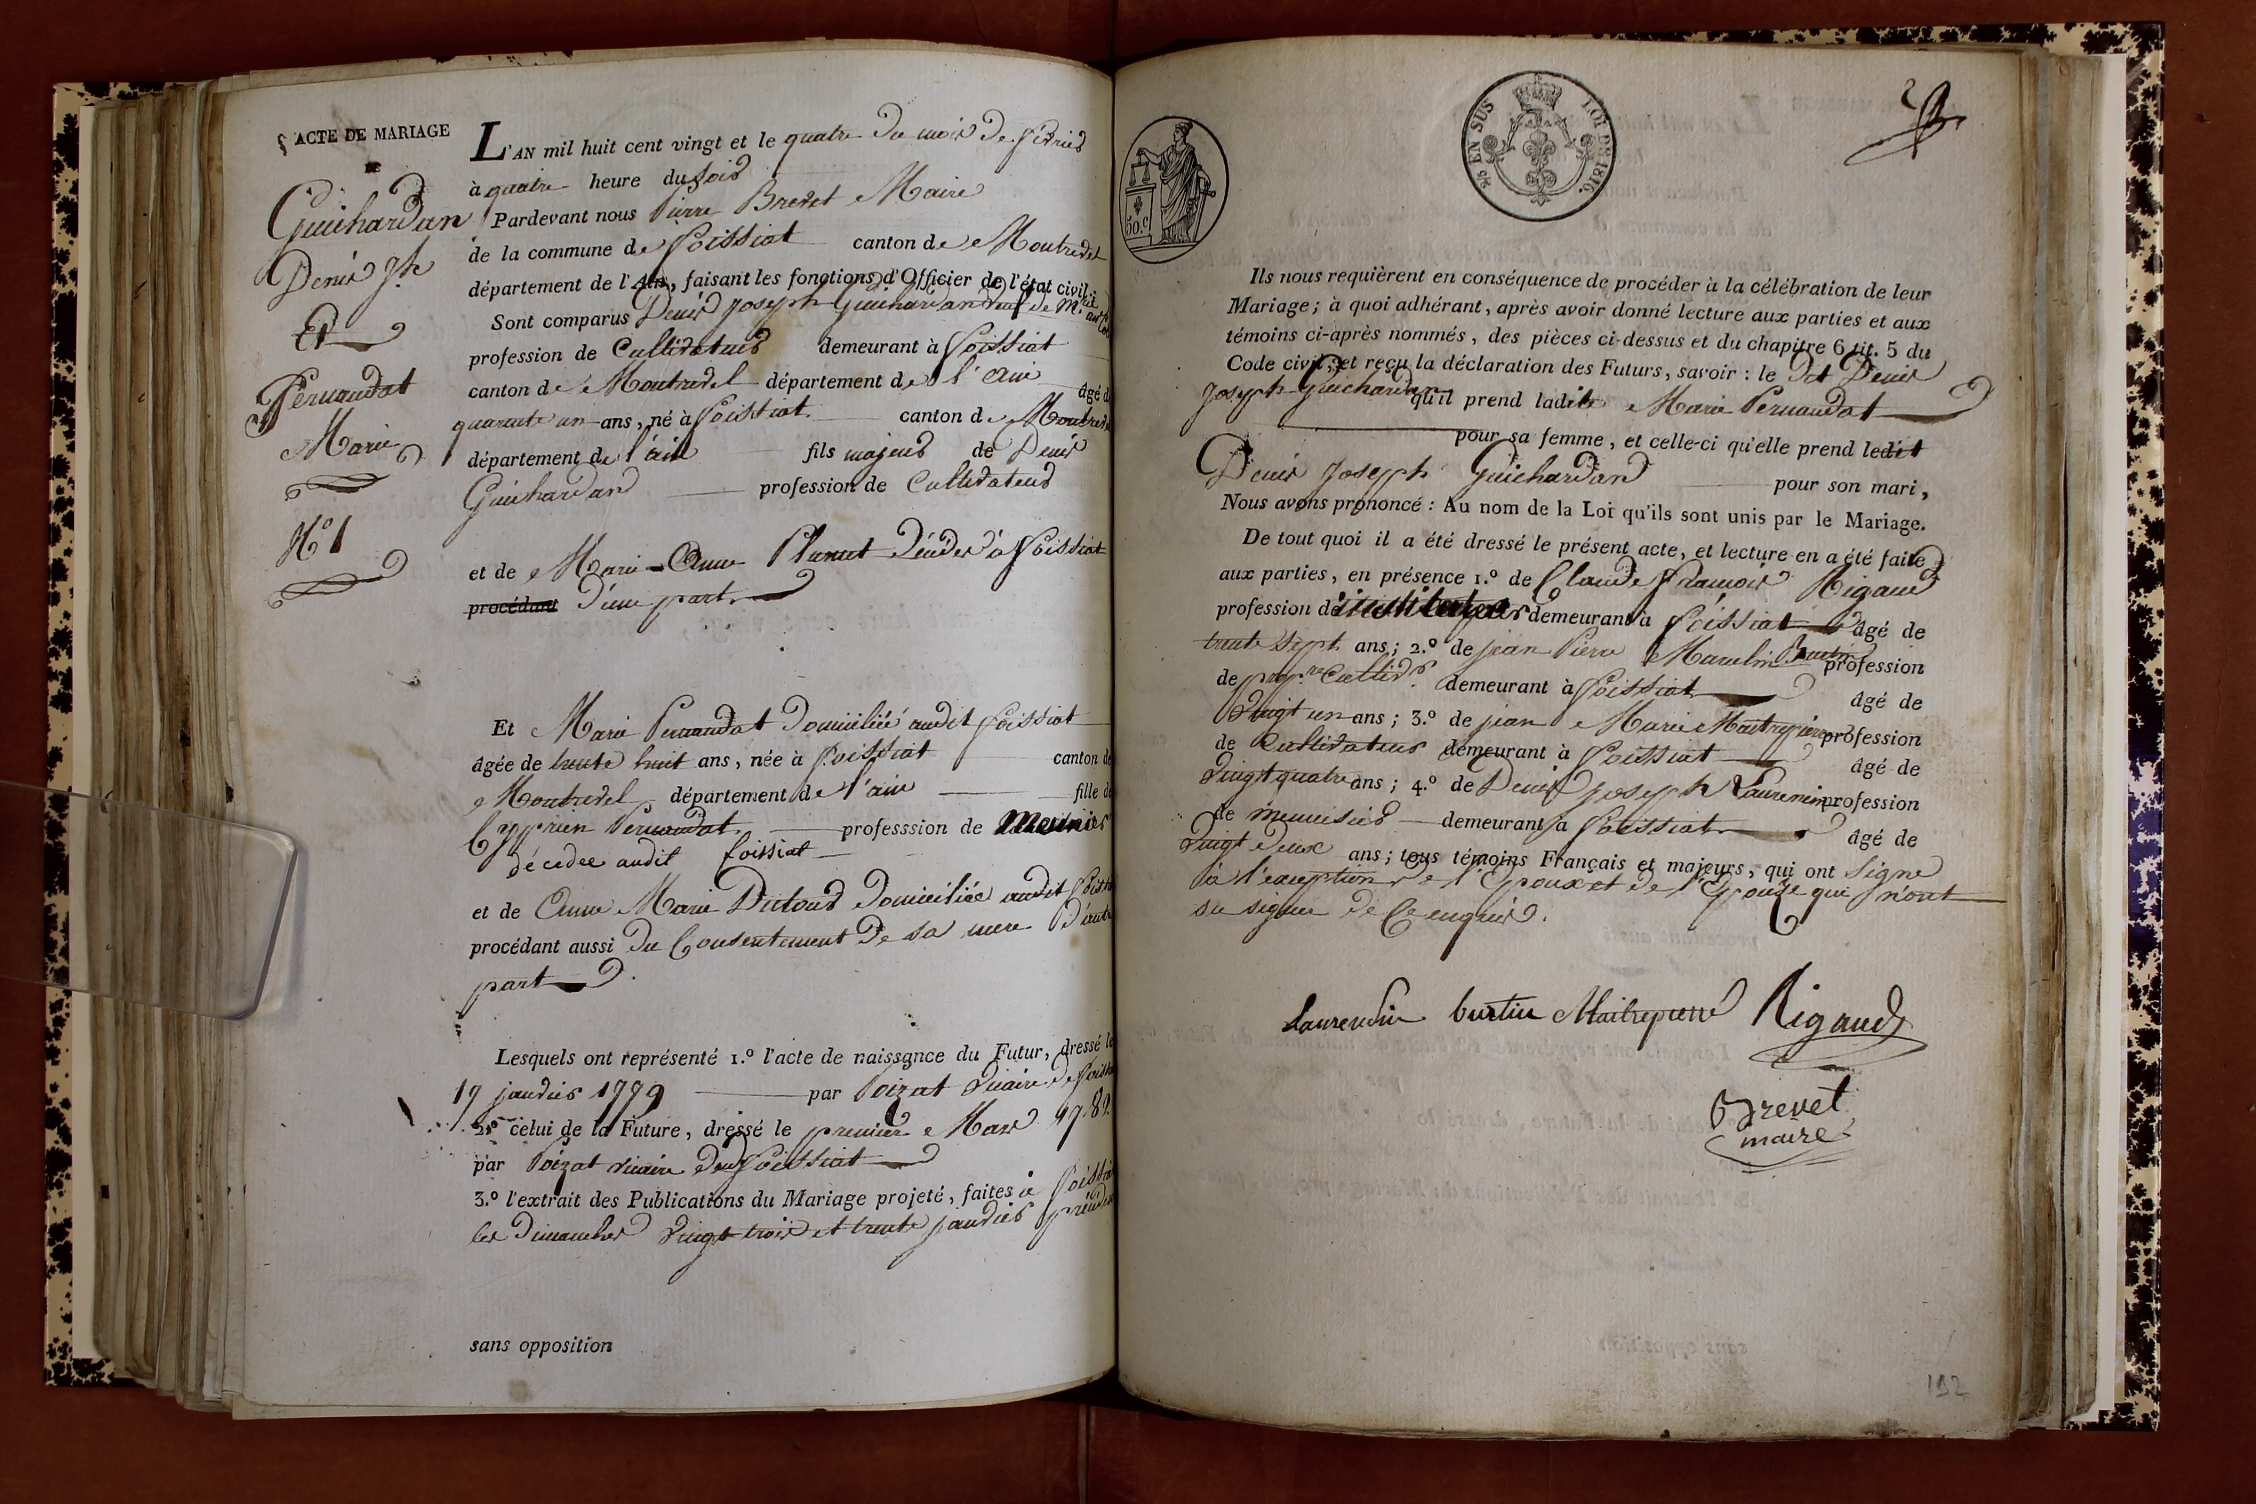 ACTE DE MARIAGE
DE
Guichardan
Denis Jh
Et
Pernaudat
Marie
N.o 1
L'AN mil huit cent vingt et le quatre du mois de février
à quatre heure du soir
Pardevant nous Pierre Brevet Maire
de la commune de Foissiat canton de Montrevel
département de l'Ain, faisant les fonctions d'Officier de l'état civil;
Sont comparus Denis Joseph Guichardan veuf de
profession de Cultivateur demeurant à Foissiat
canton de Montrevel département de l'ain âgé d
quarante un ans, né à Foissiat canton de Montrevel
département de l'ain fils majeur de Denis
Guichardan profession de Cultivateur
et de Marie Anne Planet décédés à Foissiat
procédant d'une part
Et Marie Pernaudat domiciliée audit Foissiat
âgée de trente huit ans, née à Foissiat canton de
Montrevel département de l'ain fille de
Cyprien Pernaudat professsion de Meunier
décedee audit foissiat
et de Anne Marie Dutour domiciliée audit Foiss
procédant aussi du Consentement de sa mere d'autre
part
Lesquels ont représenté 1.º l'acte de naissance du Futur, dressé le
17 janvier 1779 par Poizat vicaire de Foiss
2.º celui de la Future, dressé le premier Mars 1782
par Poizat vicaire de Foissiat
3.º l'extrait des Publications du Mariage projeté, faites à Foissia
les dimanches vingt trois et trente janvier
sans opposition
50.c
EN SUS
LOI DE 1816.
2
Ils nous requièrent en conséquence de procéder à la célébration de leur
Mariage; à quoi adhérant, après avoir donné lecture aux parties et aux
témoins ci-après nommés, des pièces ci-dessus et du chapitre 6 tit. 5 du
Code civil; et reçu la déclaration des Futurs, savoir: le dit Denis
Joseph Guichardan qu'il prend ladite Marie Pernaudat
pour sa femme, et celle-ci qu'elle prend ledit
Denis Joseph Guichardan pour son mari,
Nous avons prononcé: Au nom de la Loi qu'ils sont unis par le Mariage.
De tout quoi il a été dressé le présent acte, et lecture en a été faite
aux parties, en présence 1.º de Claude François Rigaud
profession de instituteur demeurant à Foissiat âgé de
trente sept ans; 2.º de jean Pierre Marcelin Burtin profession
de prop.re Cultiv.r demeurant à Foissiat âgé de
vingt un ans; 3.º de jean Marie Maitrepierre profession
de Cultivateur demeurant à Foissiat âgé de
vingt quatre ans; 4.º de Denis Joseph Laurencin profession
de menuisier demeurant à Foissiat âgé de
vingt deux ans; tous témoins Français et majeurs, qui ont signé
à l'exception de l'Epoux et de l'Epouze qui n'ont
su signer de Ce enquis.
Laurencin burtin Maitrepierre Rigaud
Brevet
maire
192